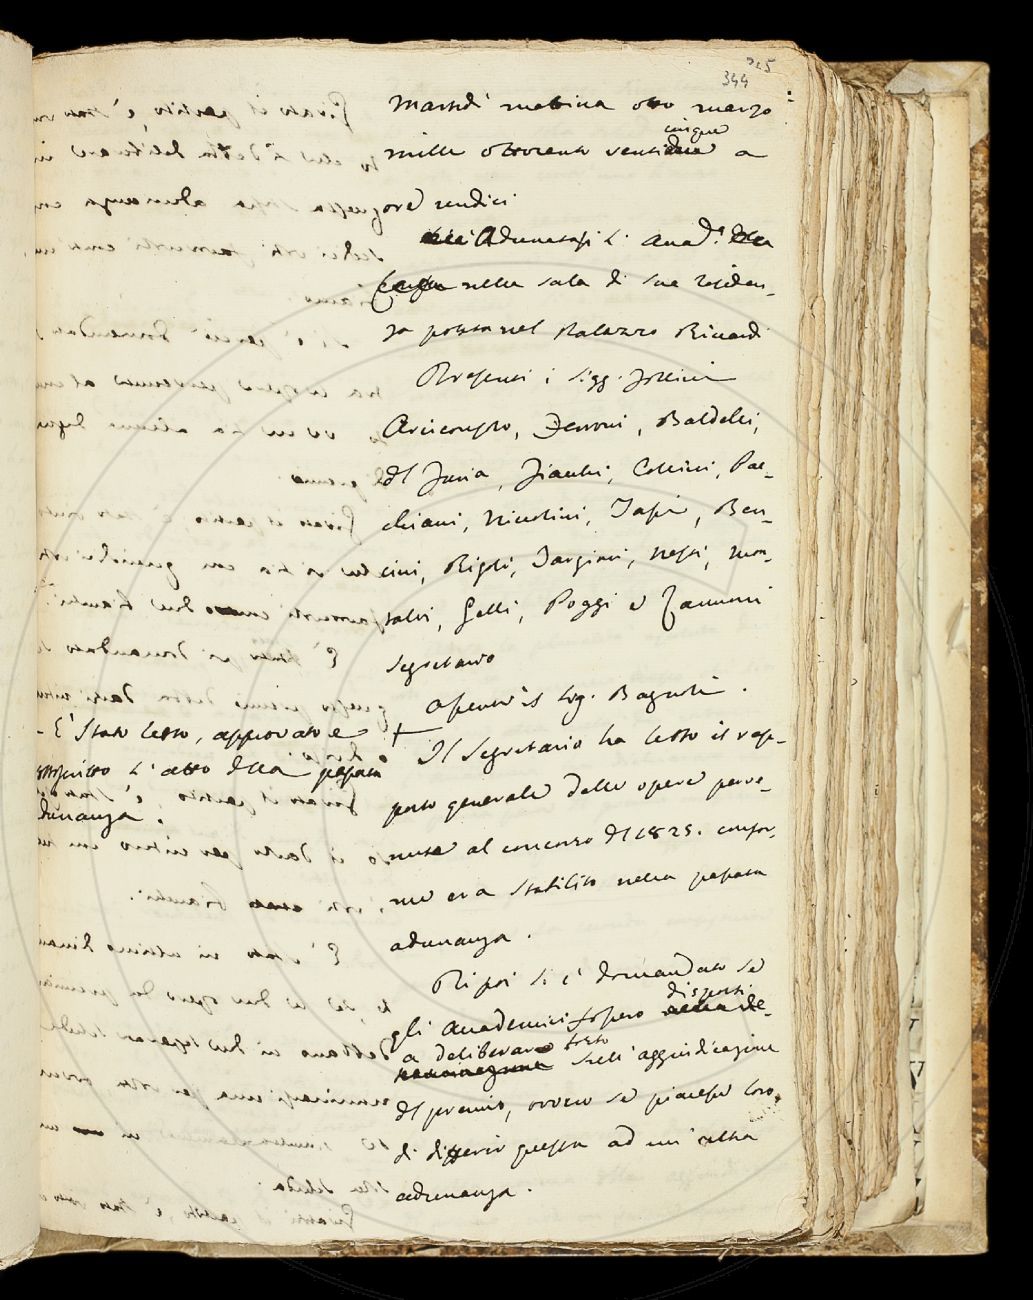 344
Martedì mattina otto marzo
mille ottocento venticinque a
ore undici
Adunatasi l'Accad.ª della
Crusca nella sala di sua residen-
za posta nel Palazzo Riccardi
Presenti i Sigg. Follini
Arciconsolo, Zannoni, Baldelli,
del Furia, Fiacchi, Collini, Pac-
chiani, Niccolini, Sarchi, Ben-
cini, Rigoli, Targioni, Nesti, Mon-
talvi, Gelli, Poggi e Zannoni
Segretario
Assente il Sig. Bagnoli.
- È stato letto, approvato e
sottoscritto l'atto della passata
adunanza.
Il Segretario ha letto il rap-
porto generale delle opere perve-
nute al concorso del 1825. confor-
me era stabilito nella passata
adunanza.
Di poi si è domandato se
gli Accademici fossero disposti
a deliberare tosto sull'aggiudicazione
del premio, ovvero se piacesse loro
di differir questa ad un'altra
adunanza.